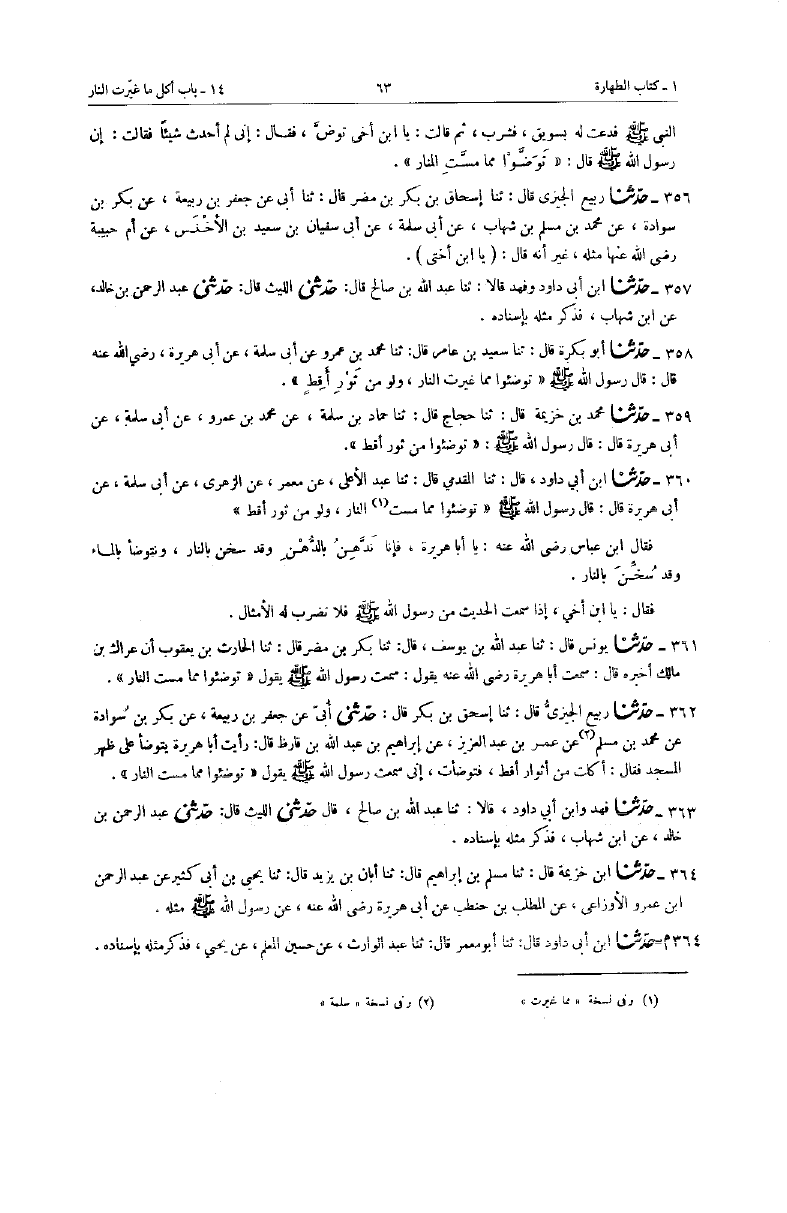 ١ - كتاب الطهارة ٦٣ ١٤ - باب أكل ما غيّرت النار
النبي ﷺ فدعت له بسويق ، فشرب ، ثم قالت : يا ابن أخى توضَّ ، فقال : إنى لم أحدث شيئًا فقالت : إن
رسول الله ﷺ قال : « تَوَضَّوُا مما مسَّتِ المنار » .
٣٥٦ - حدّثنا ربيع الجيزى قال : ثنا إسحاق بن بكر بن مضر قال : ثنا أبى عن جعفر بن ربيعة ، عن بكر بن
سوادة ، عن محمد بن مسلم بن شهاب ، عن أبى سلمة ، عن أبى سفيان بن سعيد بن الأخْنَس ، عن أم حبيبة
رضى الله عنها مثله ، غير أنه قال : ( يا ابن أختى ) .
٣٥٧ - حدّثنا ابن أبى داود وفهد قالا : ثنا عبد الله بن صالح قال: حدّثنى الليث قال: حدّثنى عبد الرحمن بن خالد،
عن ابن شهاب ، فذكر مثله بإسناده .
٣٥٨ - حدّثنا أبو بكرة قال : ثنا سعيد بن عامر قال: ثنا محمد بن عمرو عن أبى سلمة ، عن أبى هريرة ، رضي الله عنه
قال : قال رسول الله ﷺ « توضئوا مما غيرت النار ، ولو من ثَوْرِ أَقِطٍ » .
٣٥٩ - حدّثنا محمد بن خزيمة قال : ثنا حجاج قال : ثنا حماد بن سلمة ، عن محمد بن عمرو ، عن أبى سلمة ، عن
أبى هريرة قال : قال رسول الله ﷺ : « توضئوا من ثور أقط ».
٣٦٠ - حدّثنا ابن أبي داود ، قال : ثنا المقدمي قال : ثنا عبد الأعلى ، عن معمر ، عن الزهرى ، عن أبى سلمة ، عن
أبى هريرة قال : قال رسول الله ﷺ « توضئوا مما مست(١) النار ، ولو من ثور أقط »
فقال ابن عباس رضى الله عنه : يا أبا هريرة ، فإنا نَدَّهِنُ بالدُّهْنِ وقد سخن بالنار ، ونتوضأ بالماء
وقد سُخِّنَ بالنار .
فقال : يا ابن أخي ، إذا سمعت الحديث من رسول الله ﷺ فلا تضرب له الأمثال .
٣٦١ - حدّثنا يونس قال : ثنا عبد الله بن يوسف ، قال: ثنا بكر بن مضر قال : ثنا الحارث بن يعقوب أن عراك بن
مالك أخبره قال : سمعت أبا هريرة رضى الله عنه يقول : سمعت رسول الله ﷺ يقول « توضئوا مما مست النار » .
٣٦٢ - حدّثنا ربيع الجيزىُّ قال : ثنا إسحق بن بكر قال : حدّثنى أبىّ عن جعفر بن ربيعة ، عن بكر بن سُوادة
عن محمد بن مسلم(٢) عن عمر بن عبد العزيز ، عن إبراهيم بن عبد الله بن قارظ قال: رأيت أبا هريرة يتوضأ على ظهر
المسجد فقال : أكلت من أثوار أقط ، فتوضأت ، إنى سمعت رسول الله ﷺ يقول « توضئوا مما مست النار » .
٣٦٣ - حدّثنا فهد وابن أبي داود ، قالا : ثنا عبد الله بن صالح ، قال حدّثنى الليث قال: حدّثنى عبد الرحمن بن
خالد ، عن ابن شهاب ، فذكر مثله بإسناده .
٣٦٤ - حدّثنا ابن خزيمة قال : ثنا مسلم بن إبراهيم قال: ثنا أبان بن يزيد قال: ثنا يحيى بن أبى كثير عن عبد الرحمن
ابن عمرو الأوزاعى ، عن المطلب بن حنطب عن أبى هريرة رضى الله عنه ، عن رسول الله ﷺ مثله .
٣٦٤م - حدّثنا ابن أبى داود قال: ثنا أبو معمر قال: ثنا عبد الوارث ، عن حسين المعلم ، عن يحيي ، فذكر مثله بإسناده .
(١) وفى نسخة « مما غيرت » (٢) وفى نسخة « سلمة »